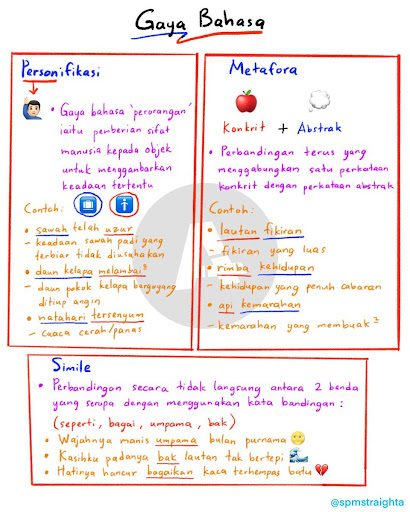 Gaya Bahasa
Personifikasi
• Gaya bahasa 'perorangan'
iaitu pemberian sifat
manusia kepada objek
untuk menggambarkan
keadaan tertentu
Contoh:
• sawah telah uzur
- keadaan sawah padi yang
terbiar tidak diusahakan
• daun kelapa melambai²
- daun pokok kelapa bergoyang
ditiup angin
• matahari tersenyum
- cuaca cerah/panas
Metafora
Konkrit + Abstrak
• Perbandingan terus yang
menggabungkan satu perkataan
konkrit dengan perkataan abstrak
Contoh:
• lautan fikiran
- fikiran yang luas
• rimba kehidupan
- kehidupan yang penuh cabaran
• api kemarahan
- kemarahan yang membuak²
Simile
• Perbandingan secara tidak langsung antara 2 benda
yang serupa dengan menggunakan kata bandingan :
(seperti, bagai, umpama, bak)
• Wajahnya manis umpama bulan purnama
• Kasihku padanya bak lautan tak bertepi
• Hatinya hancur bagaikan kaca terhempas batu
@spmstraighta